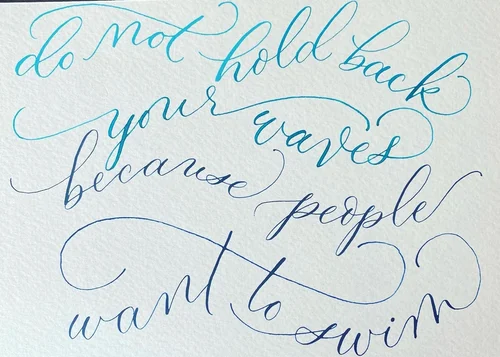 do not hold back
your waves
because people
want to swim